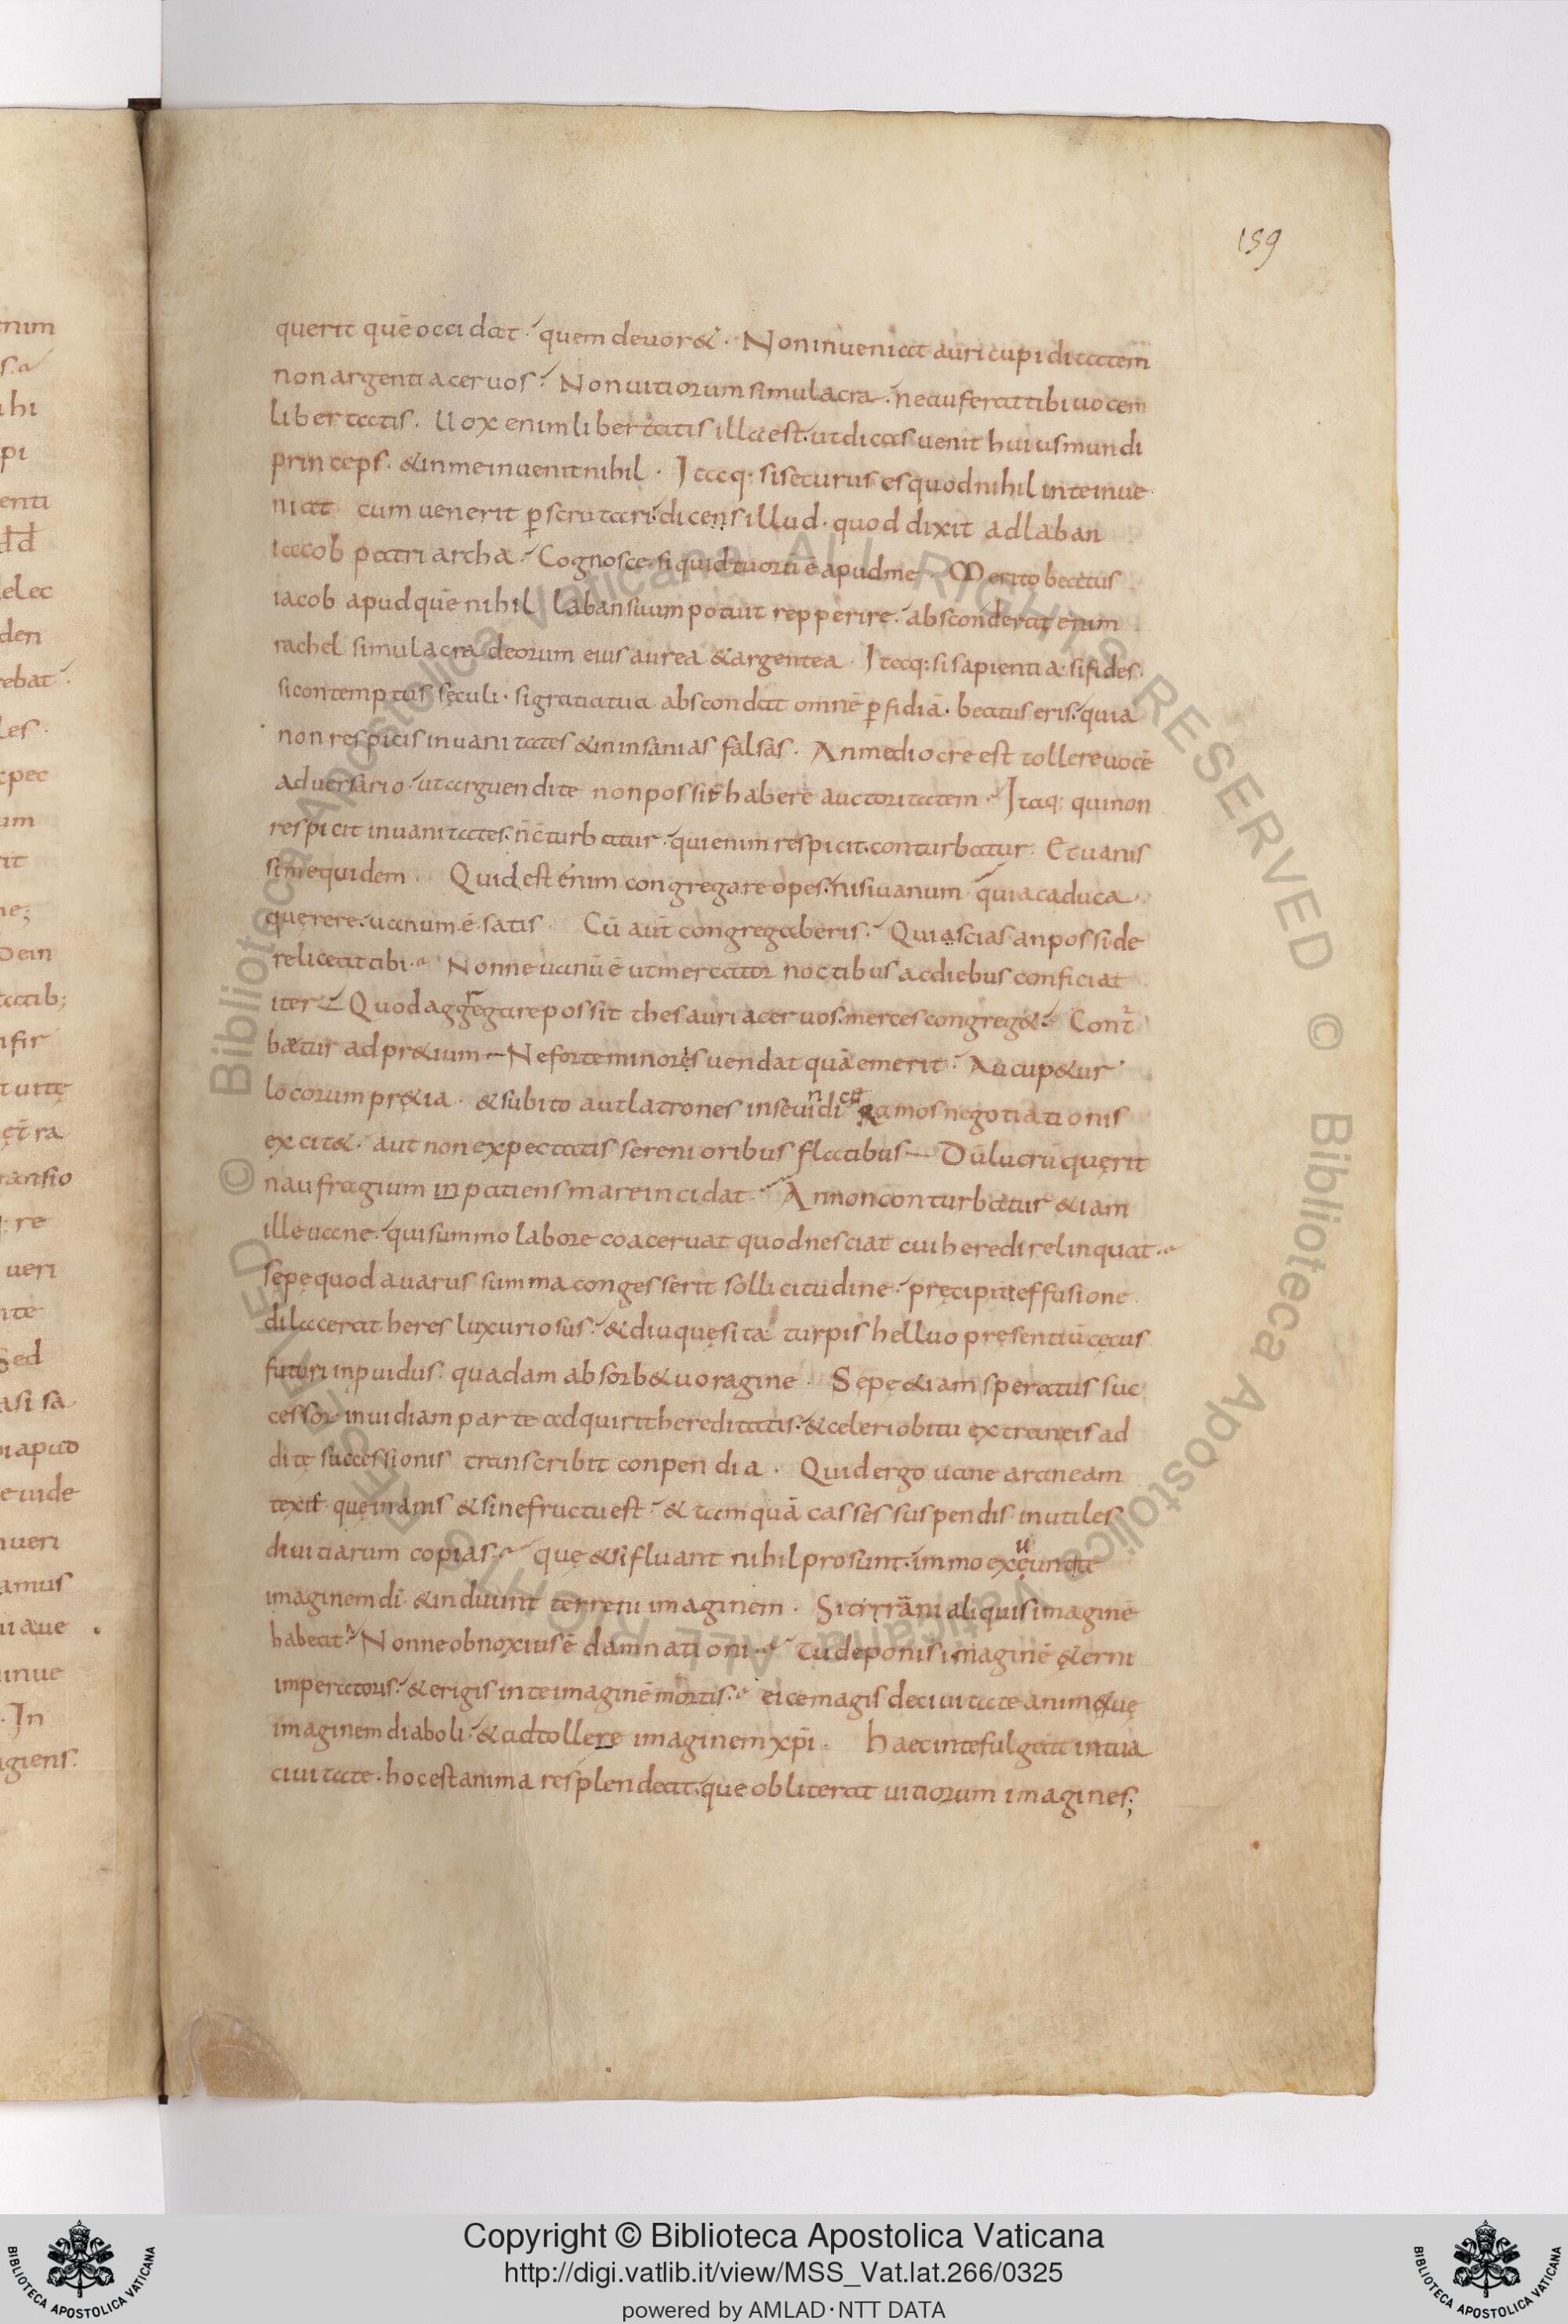 159
querit quē occidat. quem deuor&. Non inueniat auri cupiditatem
non argenti aceruos. Non uitiorum simulacra. ne auferat tibi uocem
libertatis. Uox enim libertatis illa est. ut dicas uenit huius mundi
princeps. & in me inuenit nihil. Itaq: si securus es quod nihil in te inue
niat cum uenerit pscrutari. dicens illud. quod dixit ad laban
iacob patriarcha. Cognosce. si quid tuorū ē apud me. Merito beatus
iacob apud quē nihil laban suum potuit repperire. absconderat enim
rachel simulacra deorum eius aurea & argentea. Itaq: si sapientia. si fides.
si contemptus sęculi. si gratia tua abscondat omnē pfidiā. beatus eris. quia
non respicis in uanitates & in insanias falsas. An mediocre est tollere uocē
aduersario. ut arguendi te non possit habere auctoritatem. Itaq; qui non
respicit in uanitates. n̄ cturbatur. qui enim respicit. conturbatur. Et uanis
sime quidem. Quid est enim congregare opes. nisi uanum. quia caduca
querere. uanum. ē. satis. Cū aut̄ congregaberis. Qui ascias an posside
re liceat tibi. Nonne uanū ē ut mercator noctibus ac diebus conficiat
iter. Quod aggregare possit thesauri aceruos. merces congreg&. Cont̄
batur ad pr&ium. Ne forte minores uendat quā emerit. Aucup&ur
locorum pr&ia. & subito aut latrones inseuindica famos negotiationis
excit&. aut non expectatis serenioribus flatibus. Dū lucrū quęrit
naufragium inpatiens mare incidat. An non conturbatur & iam
ille uane. qui summo labore coaceruat quod nesciat cui heredi relinquat.
sępe quod auarus summa congesserit sollicitudine. pręcipiti effusione
dilacerat heres luxuriosus. & diu quęsita turpis helluo pręsentiū cęcus
futuri inpuidus. quadam absorb& uoragine. Sępe & iam speratus suc
cessor inuidiam parte adquirit hereditatis. & celeri obitu extraneis ad
ditę successionis transcribit conpendia. Quid ergo uane araneam
texis. que inanis & sine fructu est. & tamquā casses suspendis inutiles
diuitiarum copias. quę & si fluant nihil prosunt. immo exeuunt
imaginem di. & induunt terreni imaginem. Si tirrāni aliquis imaginē
habeat. Nonne obnoxius ē damnationi. tu deponis imaginē &erni
imperatoris. & erigis in te imaginē mortis. eice magis de ciuitate animę tuę
imaginem diaboli. & adtollere imaginem xpi. haec in te fulgeat in tua
ciuitate. hoc est anima resplendeat. que obliterat uitiorum imagines;
Copyright © Biblioteca Apostolica Vaticana
http://digi.vatlib.it/view/MSS_Vat.lat.266/0325
powered by AMLAD·NTT DATA